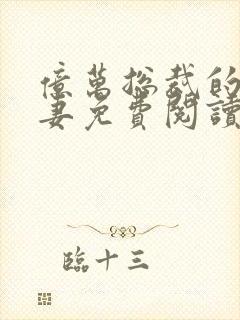 億萬總裁的
妻免費閱讀
臨十三